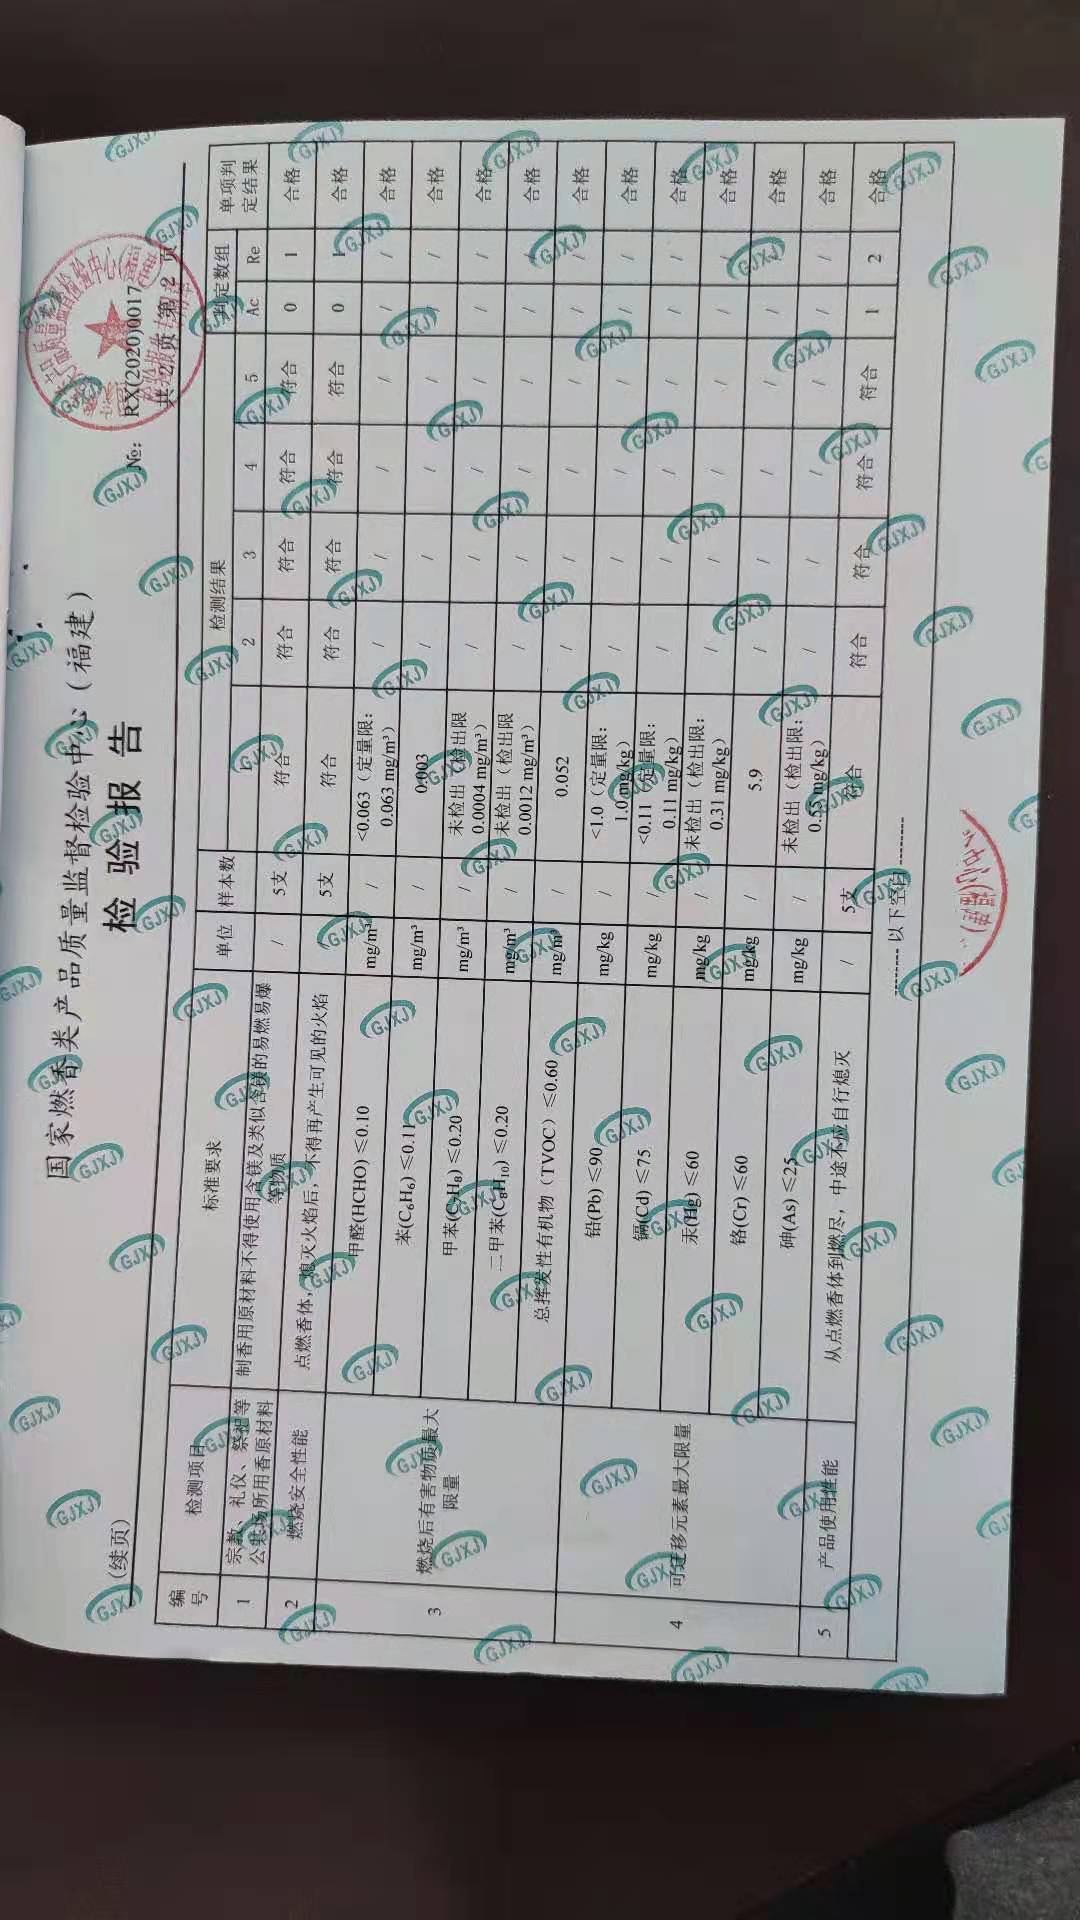 国家燃香类产品质量监督检验中心（福建）
检 验 报 告
(续页)
№: RX(2020)0017
共 2 页 第 2 页
编号 检测项目 标准要求 单位 样本数 检测结果 判定数组 单项判定结果
1 2 3 4 5 Ac Re
1 宗教、礼仪、祭祀等公共场所用香原材料 制香用原材料不得使用含镁及类似含镁的易燃易爆等物质 / 5支 符合 符合 符合 符合 符合 0 1 合格
2 燃烧安全性能 点燃香体，熄灭火焰后，不得再产生可见的火焰 / 5支 符合 符合 符合 符合 符合 0 1 合格
3 燃烧后有害物质最大限量 甲醛(HCHO) ≤0.10 mg/m³ / <0.063（定量限：0.063 mg/m³） / / / / / / 合格
苯(C₆H₆) ≤0.11 mg/m³ / 0.003 / / / / / / 合格
甲苯(C₇H₈) ≤0.20 mg/m³ / 未检出（检出限 0.0004 mg/m³） / / / / / / 合格
二甲苯(C₈H₁₀) ≤0.20 mg/m³ / 未检出（检出限 0.0012 mg/m³） / / / / / / 合格
总挥发性有机物（TVOC）≤0.60 mg/m³ / 0.052 / / / / / / 合格
4 可迁移元素最大限量 铅(Pb) ≤90 mg/kg / <1.0（定量限：1.0 mg/kg） / / / / / / 合格
镉(Cd) ≤75 mg/kg / <0.11（定量限：0.11 mg/kg） / / / / / / 合格
汞(Hg) ≤60 mg/kg / 未检出（检出限：0.31 mg/kg） / / / / / / 合格
铬(Cr) ≤60 mg/kg / 5.9 / / / / / / 合格
砷(As) ≤25 mg/kg / 未检出（检出限：0.55 mg/kg） / / / / / / 合格
5 产品使用性能 从点燃香体到燃尽，中途不应自行熄灭 / 5支 符合 符合 符合 符合 符合 1 2 合格
-------- 以下空白 --------
GJXJ